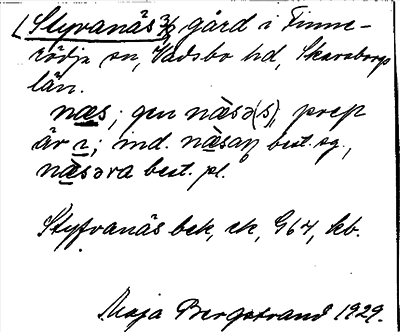 (Styvanäs 3/8 gård i Finne-
rödja sn, Vadsbo hd, Skaraborgs
län.
næs; gen næ̀sə(s), prep
är ı; ind. næ̀saṇ best. sg.,
næ̀səra best. pl.
Styfvanäs bek, ek, G64, kb.
Maja Bergstrand 1929.